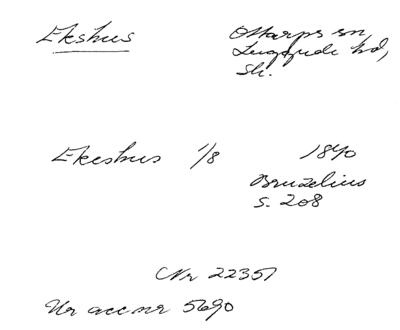 Ekshus
Ottarps sn,
Luggude hd,
Sk.
Ekeshus 1/8 1840
Bruzelius
s. 208
Nr 22351
Ur acc nr 5690